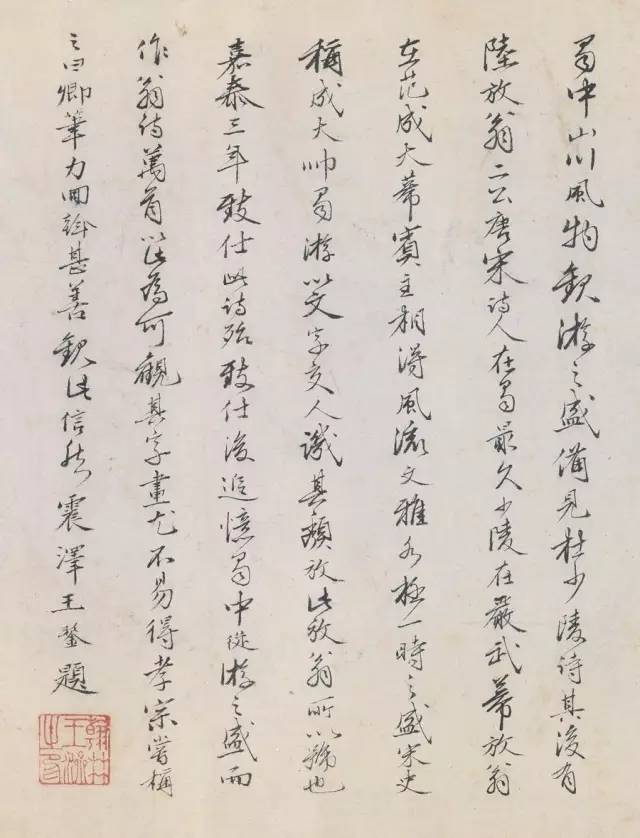 蜀中山川風物觀游之盛備見杜少陵詩其後有
陸放翁二公唐宋詩人在蜀最久少陵在嚴武幕放翁
在范成大幕賓主相得風流文雅亦極一時之盛宋史
稱成大帥蜀游以文字交人譏其頹放此放翁所以號也
嘉泰三年致仕此詩殆致仕後追憶蜀中從游之盛而
作翁詩萬首以此為可觀其字畫尤不易得孝宗嘗稱
之曰卿筆力回斡甚善觀此信然震澤王鏊題